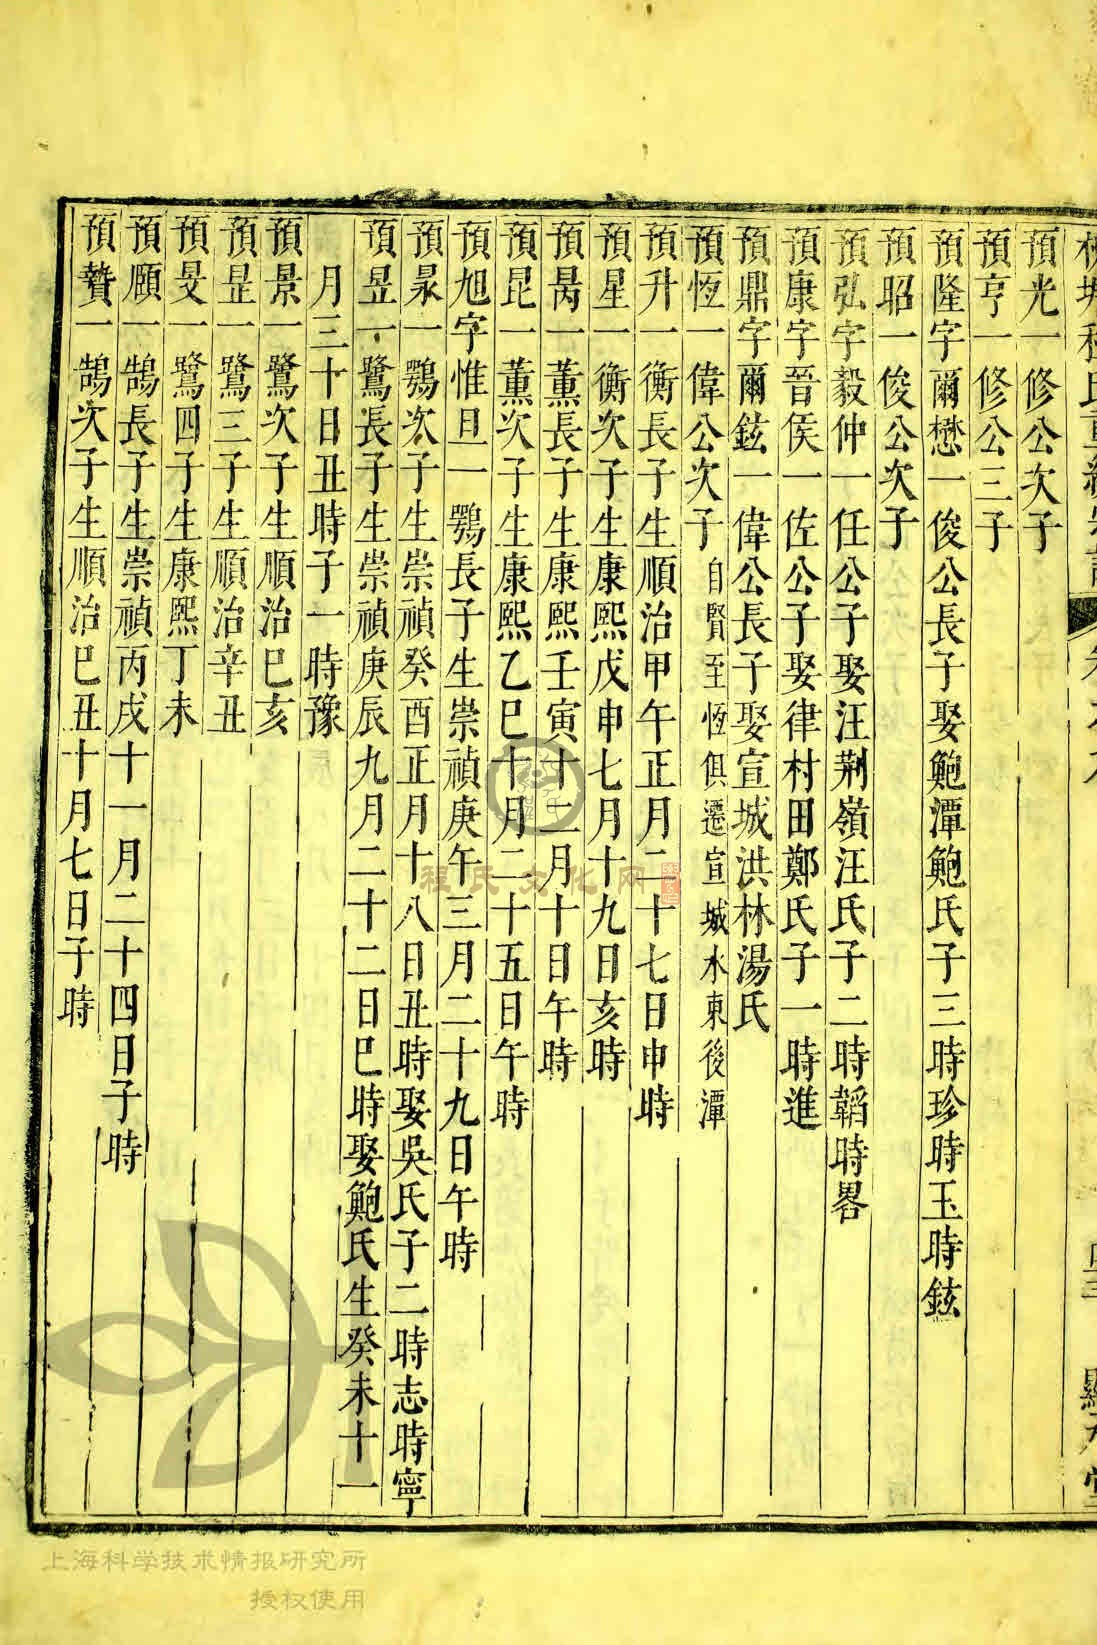 預光一修公次子
預亨一修公三子
預隆字爾懋一俊公長子娶鮑潭鮑氏子三時珍時玉時鉉
預昭一俊公次子
預弘字毅仲一任公子娶汪荆嶺汪氏子二時韜時畧
預康字晉侯一佐公子娶律村田鄭氏子一時進
預鼎字爾鉉一偉公長子娶宣城洪林湯氏
預恆一偉公次子自賢至恆俱遷宣城水東後潭
預升一衡長子生順治甲午正月二十七日申時
預星一衡次子生康熙戊申七月十九日亥時
預昺一薰長子生康熙壬寅十二月十日午時
預昆一薰次子生康熙乙巳十月二十五日午時
預旭字惟旦一鶚長子生崇禎庚午三月二十九日午時
預㬎一鶚次子生崇禎癸酉正月十八日丑時娶吳氏子二時志時寧
預昱一鷺長子生崇禎庚辰九月二十二日巳時娶鮑氏生癸未十一
月三十日丑時子一時豫
預景一鷺次子生順治巳亥
預昰一鷺三子生順治辛丑
預旻一鷺四子生康熙丁未
預願一鵠長子生崇禎丙戌十一月二十四日子時
預贊一鵠次子生順治巳丑十月七日子時
程氏文化网
上海科学技术情报研究所
授权使用